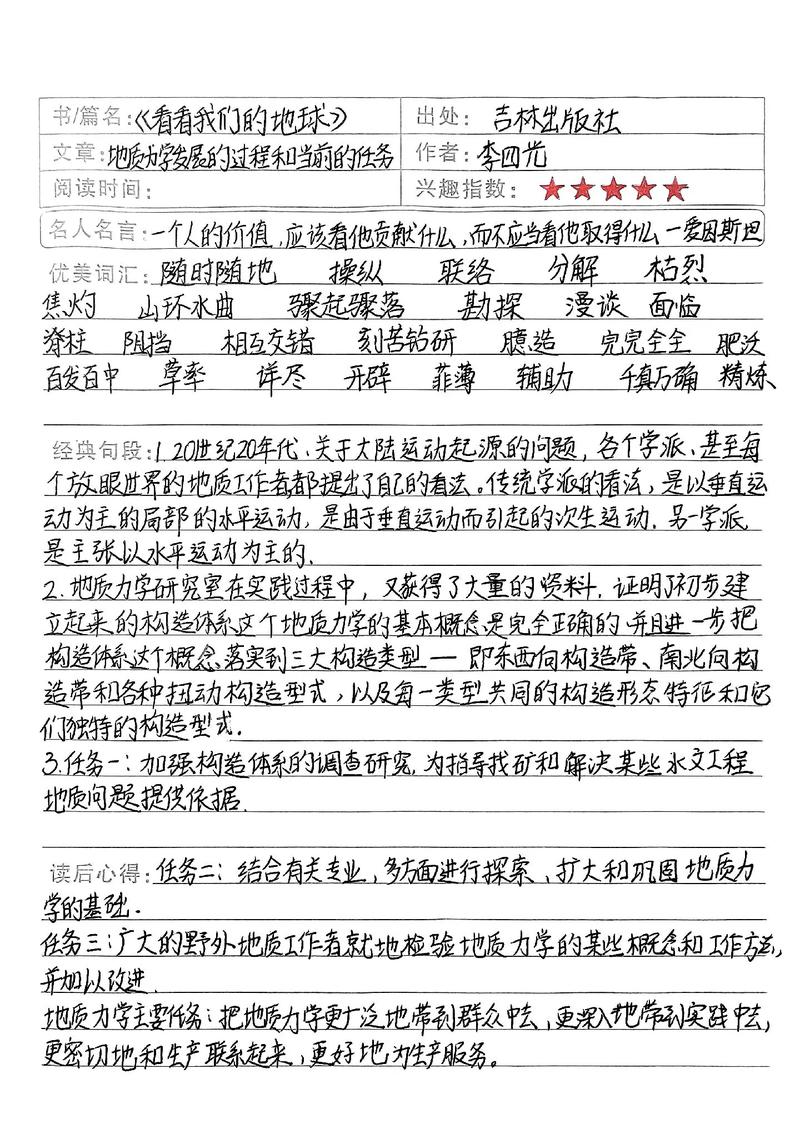 书/篇名:《看看我们的地球》 出处: 吉林出版社
文章: 地质力学发展的过程和当前的任务 作者: 李四光
阅读时间: 兴趣指数: ★★★★★
名人名言: 一个人的价值,应该看他贡献什么,而不应当看他取得什么 —爱因斯坦
优美词汇: 随时随地 操纵 联络 分解 枯烈
焦灼 山环水曲 骤起骤落 勘探 漫谈 面临
脊柱 阻挡 相互交错 刻苦钻研 臆造 完完全全 肥沃
百发百中 草率 详尽 开辟 菲薄 辅助 千真万确 精炼
经典句段: 1.20世纪20年代、关于大陆运动起源的问题,各个学派、甚至每
个放眼世界的地质工作者,都提出了自己的看法。传统学派的看法,是以垂直运
动为主的局部的水平运动,是由于垂直运动而引起的次生运动.另一学派
是主张以水平运动为主的.
2.地质力学研究室在实践过程中,又获得了大量的资料.证明了初步建
立起来的构造体系这个地质力学的基本概念是完全正确的 并且进一步把
构造体系这个概念落实到三大构造类型——即东西向构造带、南北向构
造带和各种扭动构造型式,以及每一类型共同的构造形态特征和它
们独特的构造型式.
3.任务一:加强构造体系的调查研究,为指导找矿和解决某些水文工程
地质问题提供依据.
读后心得: 任务二:结合有关专业,多方面进行探索、扩大和巩固地质力
学的基础.
任务三:广大的野外地质工作者就地检验地质力学的某些概念和工作方法,
并加以改进.
地质力学主要任务:把地质力学更广泛地带到群众中去,更深入地带到实践中去,
更密切地和生产联系起来,更好地为生产服务。